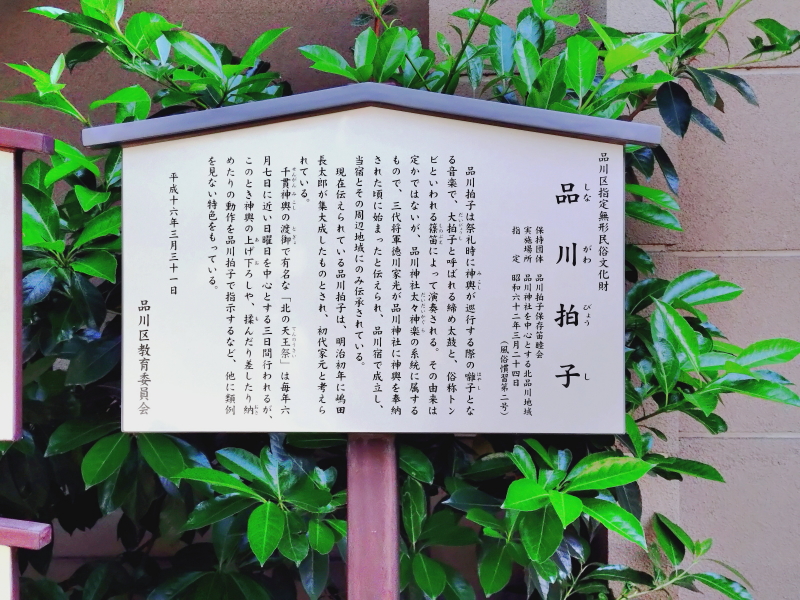 品川区指定無形民俗文化財
品川拍子
しながわびょうし
保持団体 品川拍子保存笛睦会
実施場所 品川神社を中心とする北品川地域
指定 昭和六十二年三月二十四日
(風俗慣習第二号)
品川拍子は祭礼時に神輿が巡行する際の囃子とな
る音楽で、大拍子と呼ばれる締め太鼓と、俗称トン
ビといわれる篠笛によって演奏される。その由来は
定かではないが、品川神社太々神楽の系統に属する
もので、三代将軍徳川家光が品川神社に神輿を奉納
された頃に始まったと伝えられ、品川宿で成立し、
当宿とその周辺地域にのみ伝承されている。
現在伝えられている品川拍子は、明治初年に嶋田
長太郎が集大成したものとされ、初代家元と考えら
れている。
千貫神輿の渡御で有名な「北の天王祭」は毎年六
月七日に近い日曜日を中心とする三日間行われるが、
このとき神輿の上げ下ろしや、揉んだり差したり納
めたりの動作を品川拍子で指示するなど、他に類例
を見ない特色をもっている。
平成十六年三月三十一日
品川区教育委員会